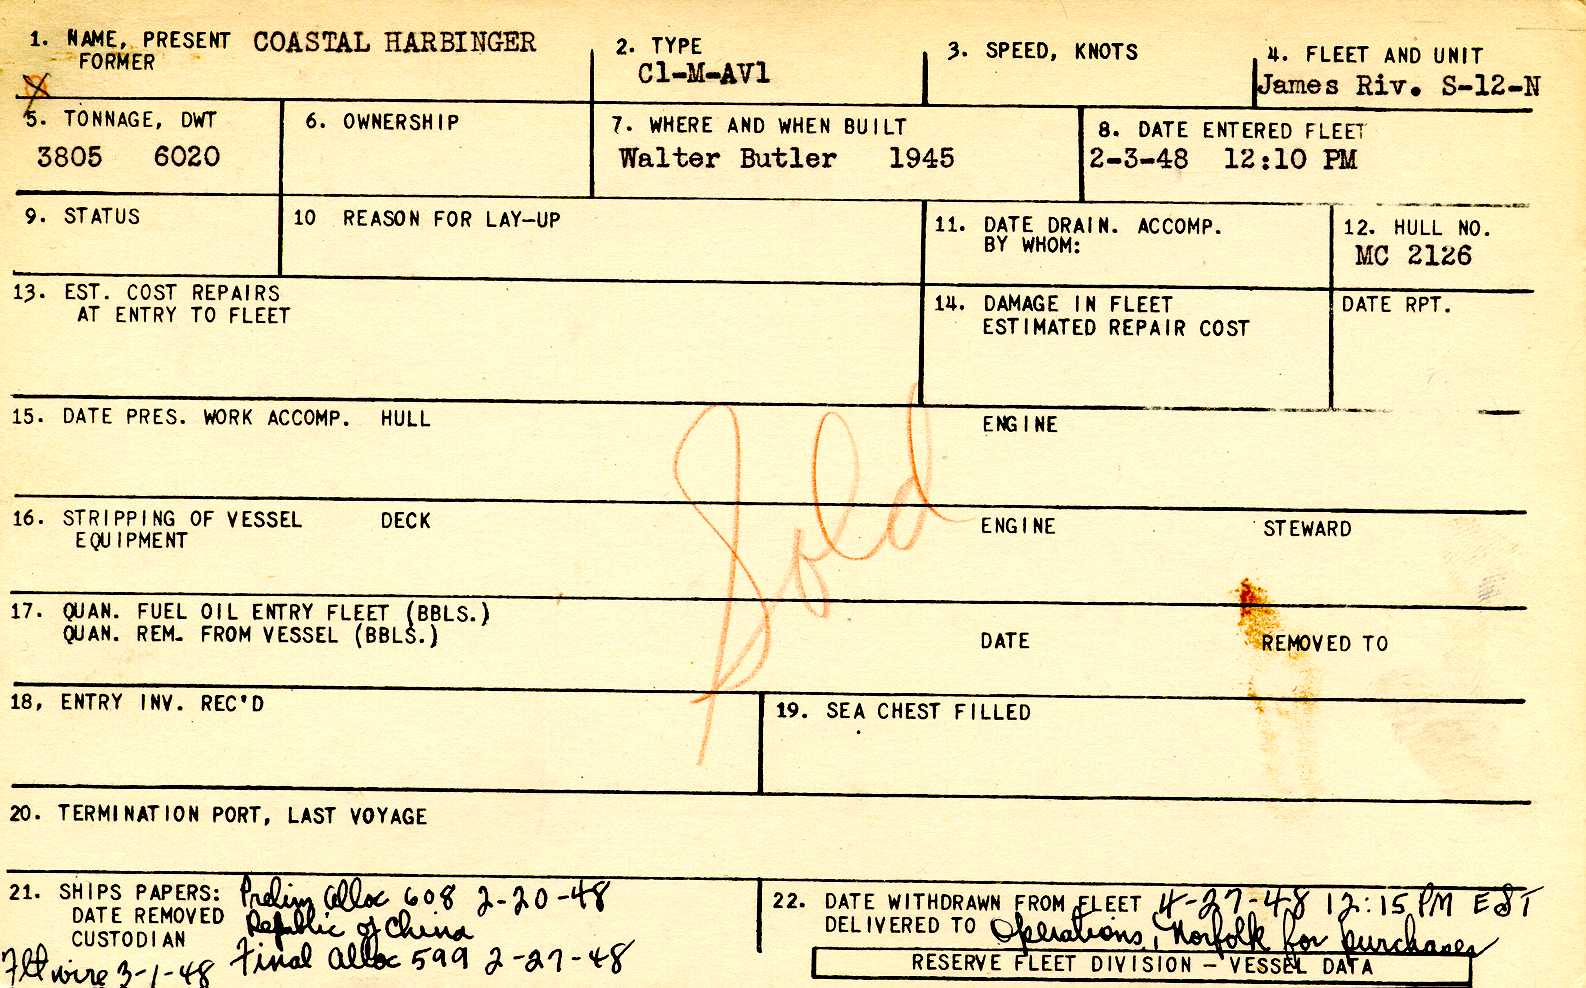 1. NAME, PRESENT COASTAL HARBINGER
FORMER
2. TYPE
C1-M-AV1
3. SPEED, KNOTS
4. FLEET AND UNIT
James Riv. S-12-N
X
5. TONNAGE, DWT
3805 6020
6. OWNERSHIP
7. WHERE AND WHEN BUILT
Walter Butler 1945
8. DATE ENTERED FLEET
2-3-48 12:10 PM
9. STATUS
10 REASON FOR LAY-UP
11. DATE DRAIN. ACCOMP.
BY WHOM:
12. HULL NO.
MC 2126
13. EST. COST REPAIRS
AT ENTRY TO FLEET
14. DAMAGE IN FLEET
ESTIMATED REPAIR COST
DATE RPT.
15. DATE PRES. WORK ACCOMP. HULL
ENGINE
Sold
16. STRIPPING OF VESSEL DECK
EQUIPMENT
ENGINE
STEWARD
17. QUAN. FUEL OIL ENTRY FLEET (BBLS.)
QUAN. REM. FROM VESSEL (BBLS.)
DATE
REMOVED TO
18, ENTRY INV. REC'D
19. SEA CHEST FILLED
20. TERMINATION PORT, LAST VOYAGE
21. SHIPS PAPERS: Prelim Alloc 608 2-20-48
DATE REMOVED Republic of China
CUSTODIAN Final Alloc 599 2-27-48
Flt wire 3-1-48
22. DATE WITHDRAWN FROM FLEET 4-27-48 12:15 PM EST
DELIVERED TO Operations, Norfolk for purchaser
RESERVE FLEET DIVISION - VESSEL DATA